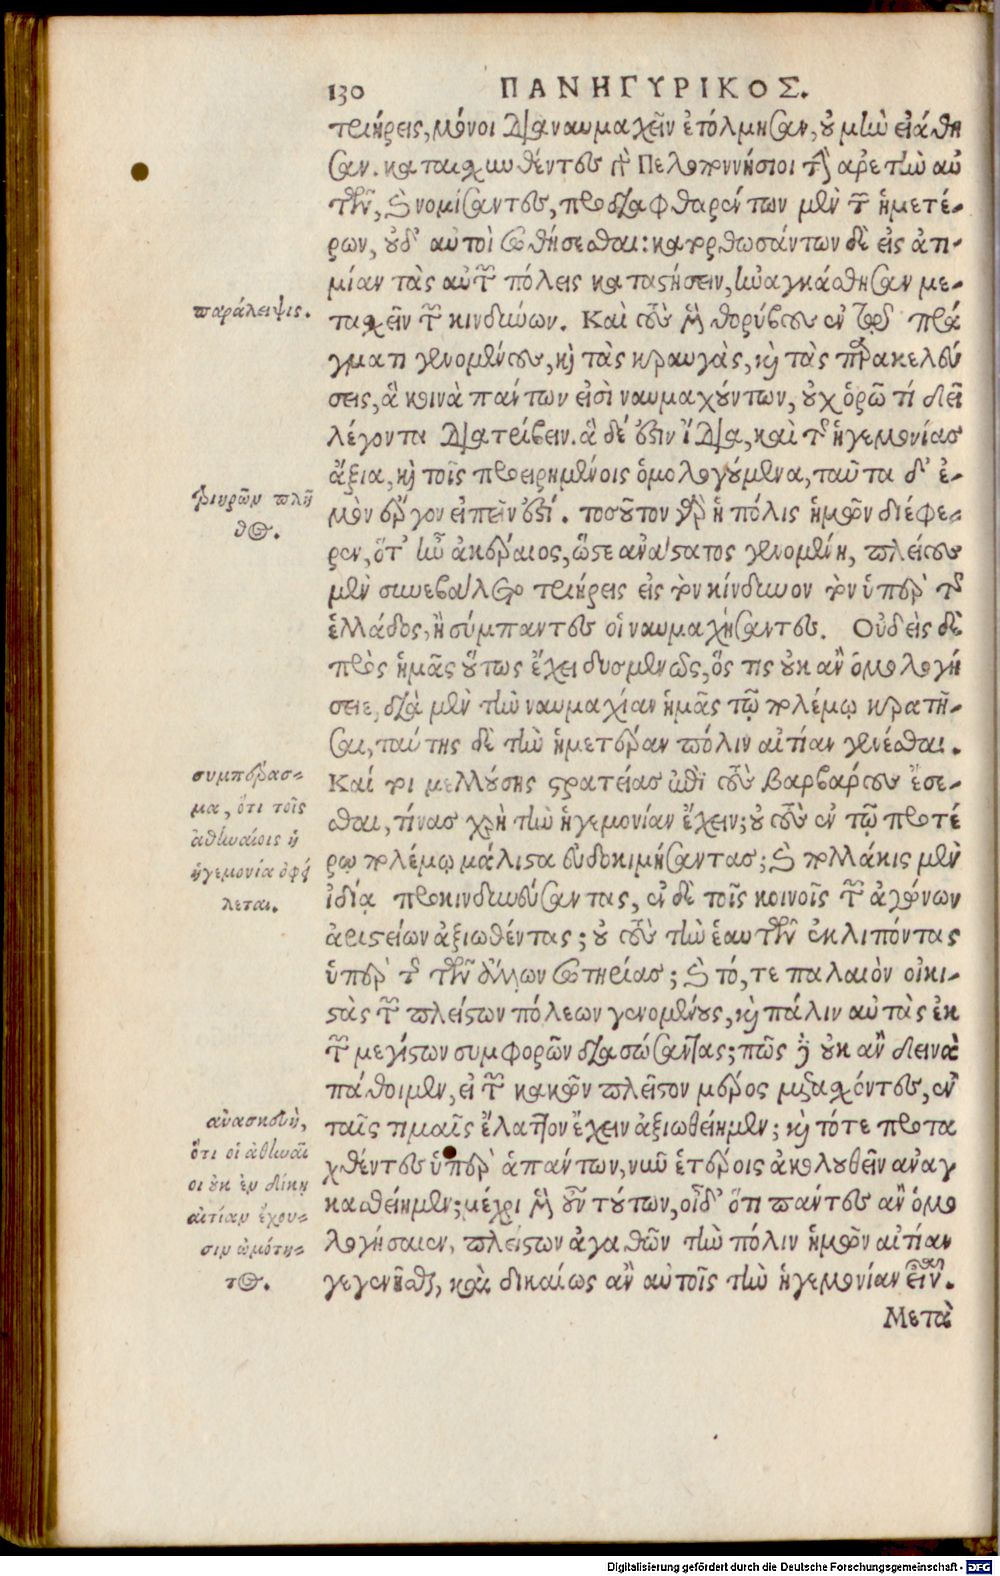 130 ΠΑΝΗΓΥΡΙΚΟΣ.
τριήρεις, μόνοι διαναυμαχεῖν ἐτόλμησαν, οὐ μὴν εἰάθη
σαν. καταισχυνθέντες γὰρ Πελοποννήσιοι τὴν ἀρετὴν αὐ
τῶν, καὶ νομίσαντες, προδιαφθαρέντων μὲν τῶν ἡμετέ-
ρων, οὐδ' αὐτοὶ σωθήσεσθαι: κατορθωσάντων δὲ εἰς ἀτι-
μίαν τὰς αὐτῶν πόλεις καταστήσειν, ἠναγκάσθησαν με-
παράλειψις.
τασχεῖν τῶν κινδύνων. Καὶ τοὺς μὲν θορύβους ἐν τῷ πρά
γματι γενομένους, καὶ τὰς κραυγὰς, καὶ τὰς παρακελεύ
σεις, ἃ κοινὰ πάντων εἰσὶ ναυμαχούντων, οὐχ ὁρῶ τί δεῖ
λέγοντα διατρίβειν. ἃ δέ ἐστιν ἴδια, καὶ τῆς ἡγεμονίας
ἄξια, καὶ τοῖς προειρημένοις ὁμολογούμενα, ταῦτα δ' ἐ-
τριηρῶν πλῆ
θος.
μὸν ἔργον εἰπεῖν ἐστί. τοσοῦτον γὰρ ἡ πόλις ἡμῶν διέφε-
ρεν, ὅτ' ἦν ἀκέραιος, ὥστε ἀνάστατος γενομένη, πλείους
μὲν συνεβάλετο τριήρεις εἰς τὸν κίνδυνον τὸν ὑπὲρ τῆς
ἑλλάδος, ἢ σύμπαντες οἱ ναυμαχήσαντες. Οὐδεὶς δὲ
πρὸς ἡμᾶς οὕτως ἔχει δυσμενῶς, ὅς τις οὐκ ἂν ὁμολογή
σειε, διὰ μὲν τὴν ναυμαχίαν ἡμᾶς τῷ πολέμῳ κρατῆ-
σαι, ταύτης δὲ τὴν ἡμετέραν πόλιν αἰτίαν γενέσθαι.
συμπέρασ-
μα, ὅτι τοῖς
ἀθηναίοις ἡ
ἡγεμονία ὀφεί
λεται.
Καί τοι μελλούσης στρατείας ἐπὶ τοὺς βαρβάρους ἔσε-
σθαι, τίνας χρὴ τὴν ἡγεμονίαν ἔχειν; οὐ τοὺς ἐν τῷ προτέ
ρῳ πολέμῳ μάλιστα εὐδοκιμήσαντας; καὶ πολλάκις μὲν
ἰδίᾳ προκινδυνεύσαντας, ἐν δὲ τοῖς κοινοῖς τῶν ἀγώνων
ἀριστείων ἀξιωθέντας; οὐ τοὺς τὴν ἑαυτῶν ἐκλιπόντας
ὑπὲρ τῆς τῶν ἄλλων σωτηρίας; καὶ τό, τε παλαιὸν οἰκι-
στὰς τῶν πλείστων πόλεων γενομένους, καὶ πάλιν αὐτὰς ἐκ
τῶν μεγίστων συμφορῶν διασώσαντας; πῶς δ' οὐκ ἂν δεινὰ
πάθοιμεν, εἰ τῶν κακῶν πλεῖστον μέρος μετασχόντες, ἐν
ἀνασκευὴ,
ὅτι οἱ ἀθηναῖ
οι οὐκ ἐν δίκῃ
αἰτίαν ἔχου-
σιν ὠμότη-
τος.
ταῖς τιμαῖς ἔλαττον ἔχειν ἀξιωθείημεν; καὶ τότε προτα
χθέντες ὑπὲρ ἁπάντων, νῦν ἑτέροις ἀκολουθεῖν ἀναγ
κασθείημεν; μέχρι μὲν οὖν τούτων, οἶδ' ὅτι πάντες ἂν ὁμο
λογήσαιεν, πλείστων ἀγαθῶν τὴν πόλιν ἡμῶν αἰτίαν
γεγενῆσθαι, καὶ δικαίως ἂν αὐτοῖς τὴν ἡγεμονίαν εἶναι.
Μετὰ
Digitalisierung gefördert durch die Deutsche Forschungsgemeinschaft - DFG